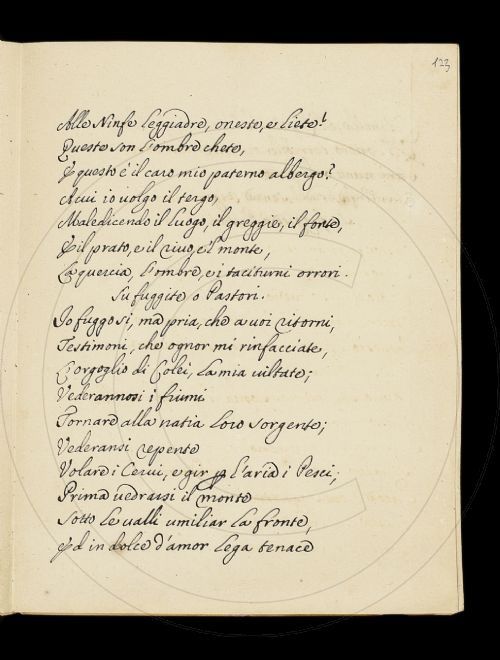 123
Alle Ninfe leggiadre, oneste, e liete?
Queste son l'ombre chete,
E questo è il caro mio paterno albergo?
A cui io volgo il tergo,
Maledicendo il luogo, il greggie, il fonte,
E il prato, e il rivo, e l'monte,
La quercia, l'ombre, e i taciturni orrori.
Su fuggite o Pastori.
Io fuggo sì, ma pria, che a voi ritorni,
Testimoni, che ognor mi rinfacciate,
L'orgoglio di Colei, la mia viltate;
Vederannosi i fiumi
Tornare alla natia loro sorgente;
Vederansi repente
Volare i Cervi, e gir p l'aria i Pesci;
Prima vedrassi il monte
Sotto le valli umiliar la fronte,
Ed in dolce d'amor lega tenace